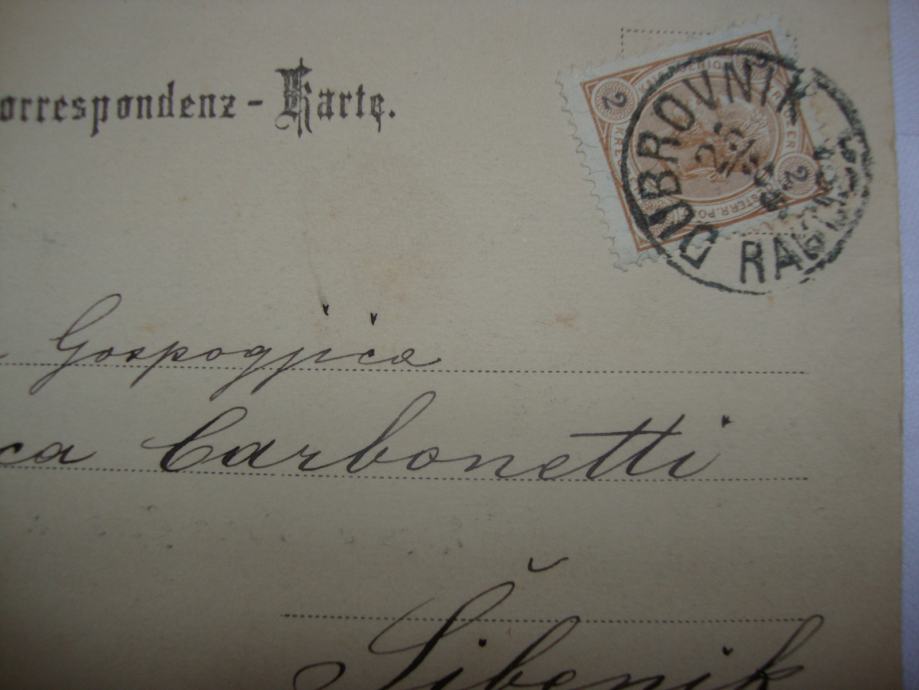 orrespondenz-Karte.
DUBROVNIK RAGUSA
2 2
Gospogjica
ca Carbonetti
Šibenik